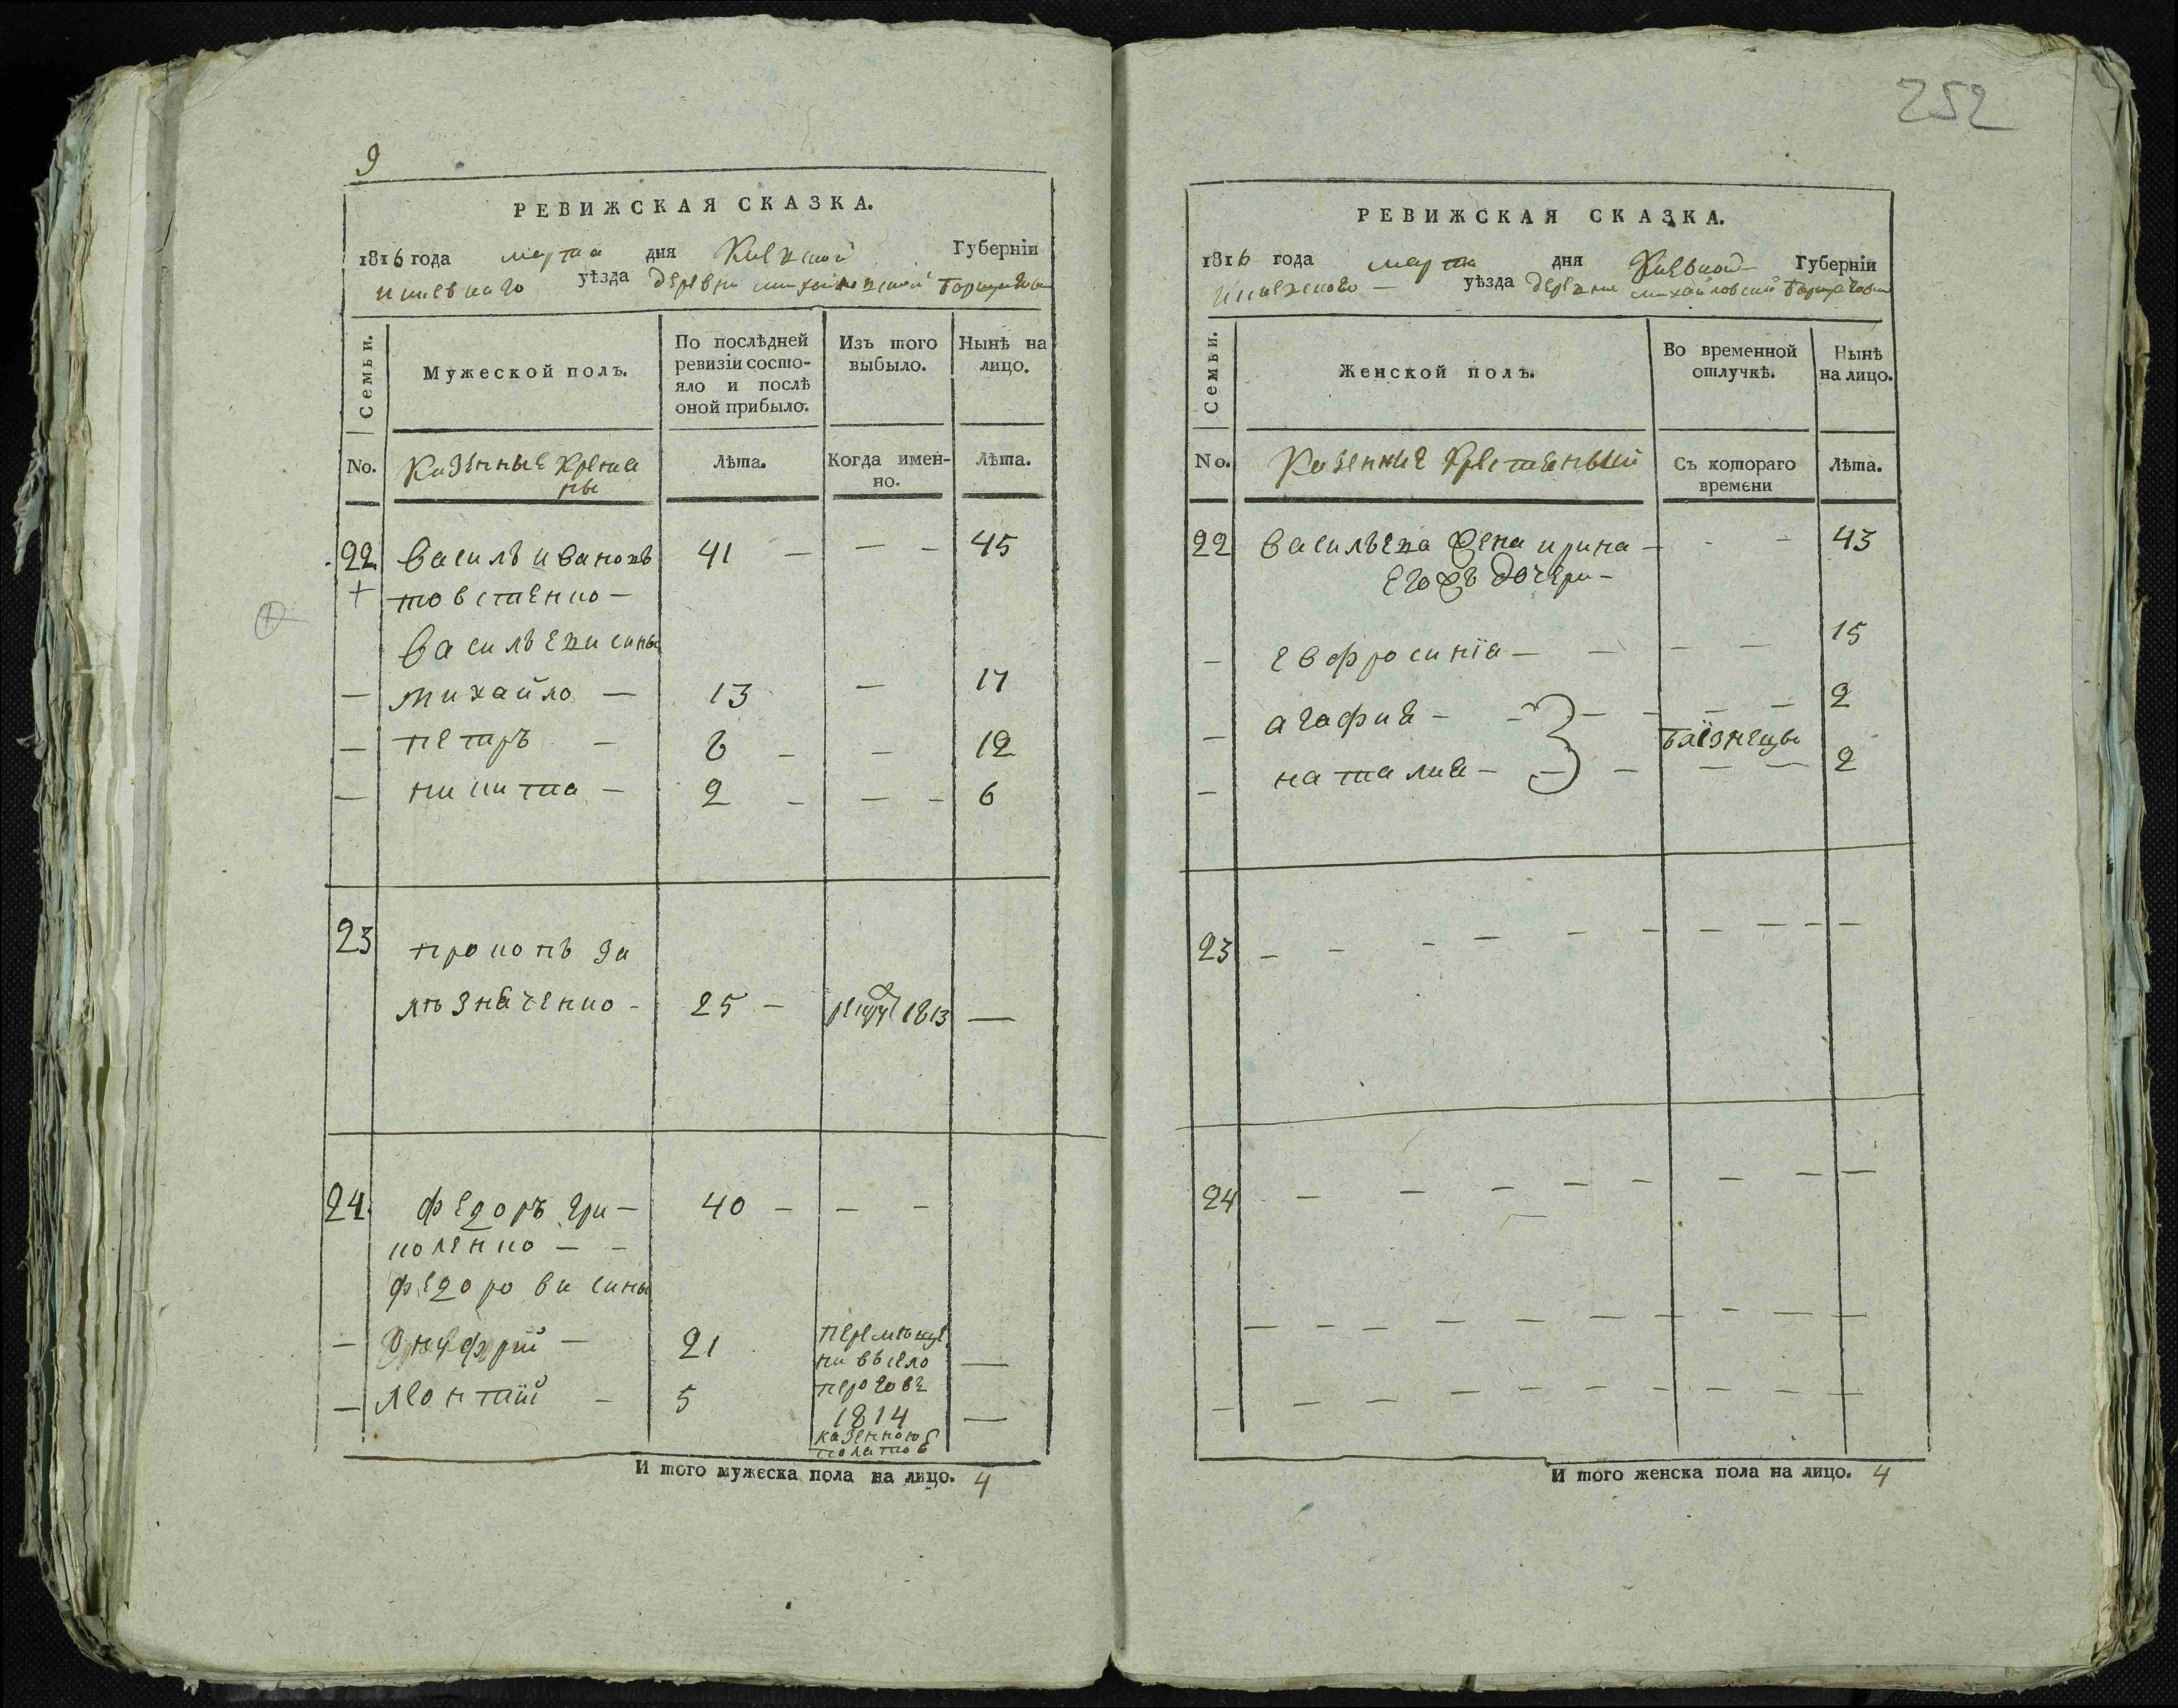 9
РЕВИЖСКАЯ СКАЗКА.
1816 года марта дня Киевской Губерніи
Киевского уѣзда деревни михайловской Борщаговки
Семьи.
Мужеской полъ.
По послѣдней ревизіи состояло и послѣ оной прибыло.
Изъ того выбыло.
Нынѣ на лицо.
No. Казенные Крестяны
Лѣта.
Когда именно.
Лѣта.
22 Василь Ивановъ 41 — — — 45
+ товстенко —
Васильеви сины
— михайло — 13 — 17
— петръ — 8 — — 12
— никита — 2 — — — 6
23 прокопъ за
лѣзначенко — 25 — 1813 —
24. федоръ гри— 40 — — —
коленко — —
федорови сины
— 21 перемѣще
ни в село —
— леонтий — 5 пирогове
1814 —
казенною
полатою
И того мужеска пола на лицо. 4
252
РЕВИЖСКАЯ СКАЗКА.
1816 года марта дня Киевской Губерніи
Киевского — уѣзда деревни михайловской Борщаговки
Семьи.
Женской полъ.
Во временной отлучкѣ.
Нынѣ на лицо.
No. Казенные
Съ котораго времени
Лѣта.
22 Васильева жена ирина — - — 43
егожъ дочери —
— евфросинїа — — — — 15
— агафия — — — — — — 2
близнецы
— наталия — — — — — 2
23 — — — — — — — — — —
24 — — — — — — — —
— — — — — — — — — —
— — — — — — — — — —
И того женска пола на лицо. 4